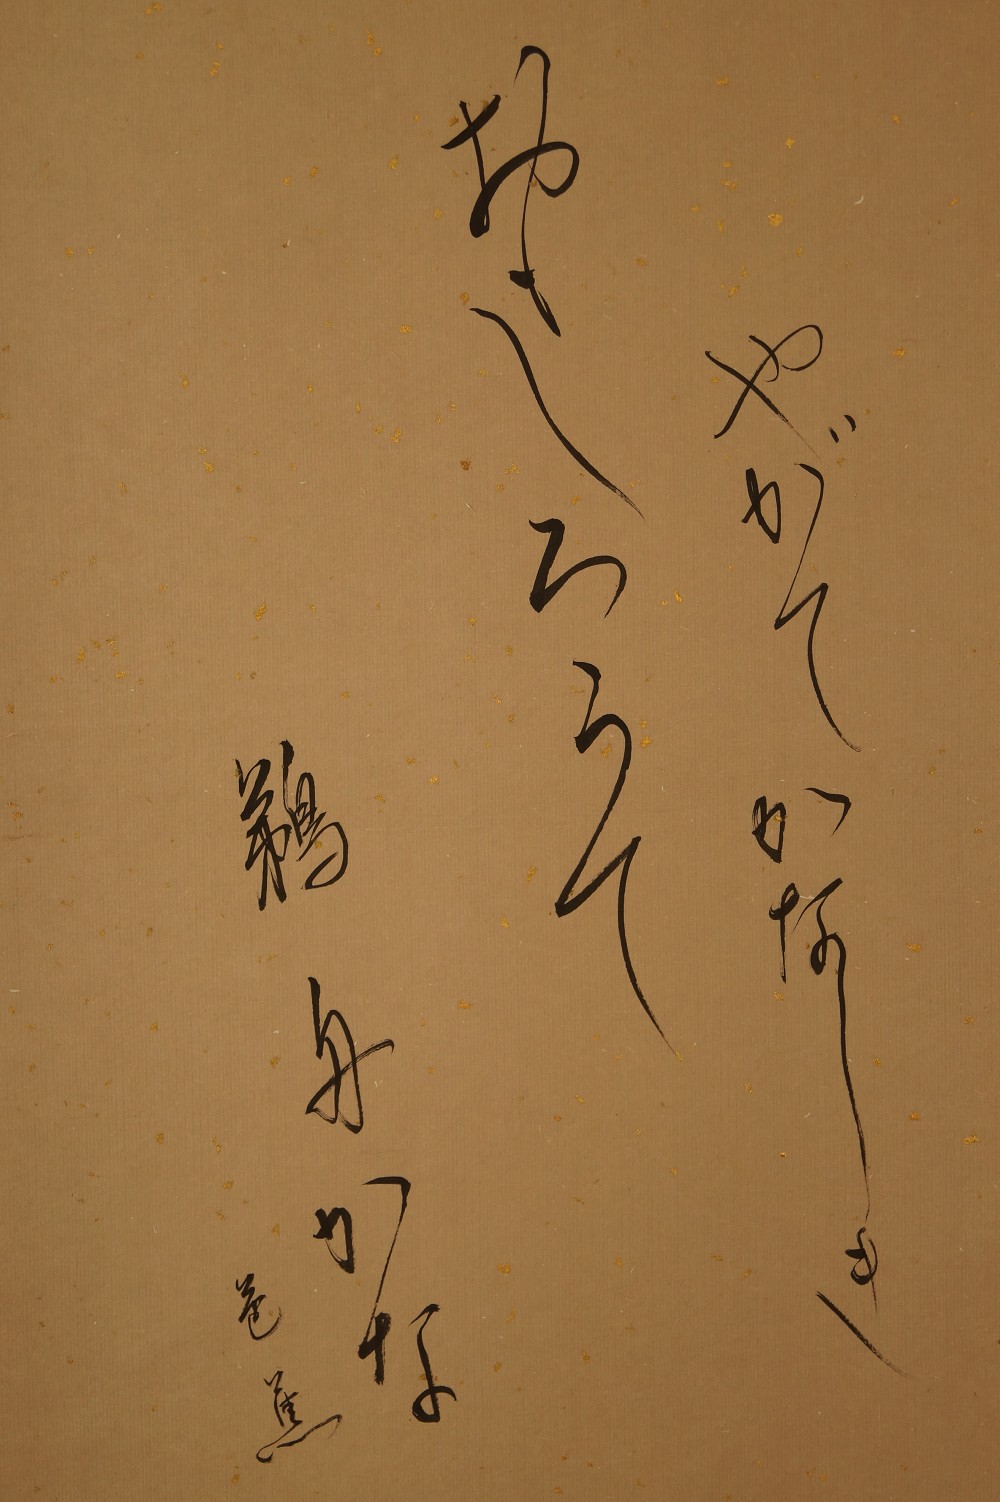 おもしろうて
やがてかなしき
鵜舟かな
芭蕉